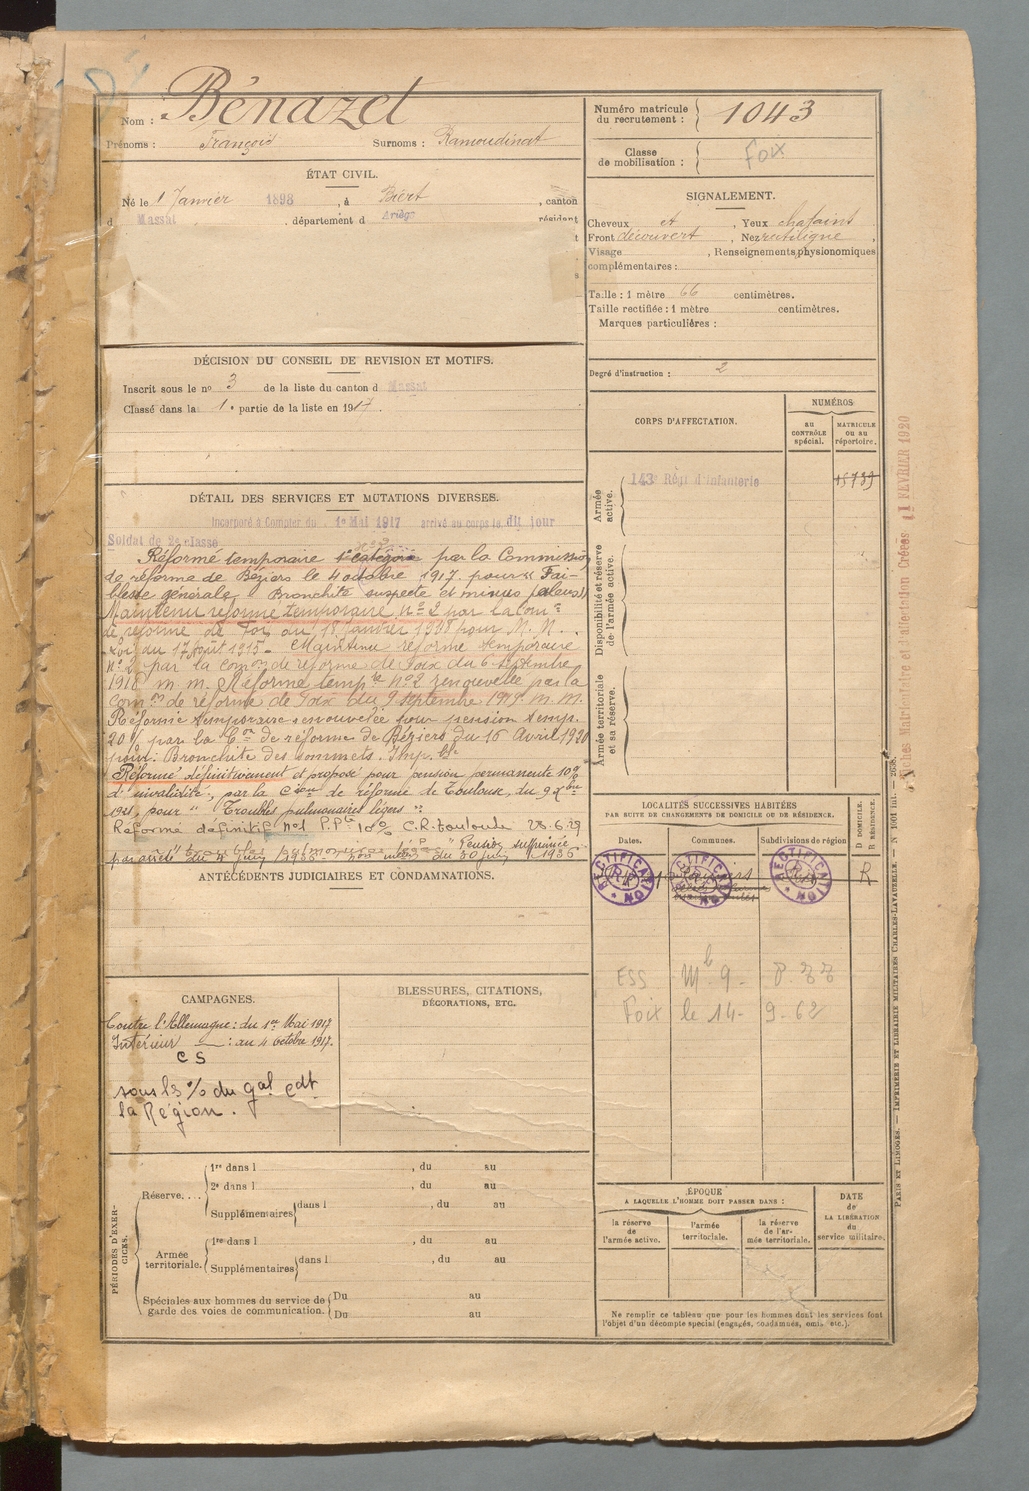 Nom : Bénazet
Prénoms : François Surnoms : Ramoudinat
Numéro matricule du recrutement : 1043
Classe de mobilisation : Foix
ÉTAT CIVIL.
Né le 1 Janvier 1898, à Biert, canton
d Massat, département d Ariège résidant
SIGNALEMENT.
Cheveux et, Yeux chatains
Front découvert, Nez rectiligne,
Visage , Renseignements physionomiques
complémentaires :
Taille : 1 mètre 66 centimètres.
Taille rectifiée : 1 mètre centimètres.
Marques particulières :
Degré d'instruction : 2
DÉCISION DU CONSEIL DE REVISION ET MOTIFS.
Inscrit sous le nº 3 de la liste du canton d Massat
Classé dans la 1e partie de la liste en 1917.
CORPS D'AFFECTATION.
NUMÉROS
AU CONTRÔLE spécial.
MATRICULE OU AU répertoire.
Armée active.
143e Régt d'Infanterie 15789
Disponibilité et réserve de l'armée active.
Armée territoriale et sa réserve.
DÉTAIL DES SERVICES ET MUTATIONS DIVERSES.
Incorporé à Compter du 1e Mai 1917 arrivé au corps le dit jour
Soldat de 2e classe
Réformé temporaire 1e catégorie par la Commission
de réforme de Béziers le 4 octobre 1917. pour « Fai-
blesse générale, Bronchite suspecte et
Maintenu réformé temporaire nº 2 par la com
de réforme de Foix du 18 Janvier 1918 pour M. M.
Loi du 17 Août 1915. Maintenu réformé temporaire
Nº 2 par la comon de réforme de Foix du 6 Septembre
1918 m. m. Réforme tempre Nº2 renouvelée par la
comon de réforme de Foix du 9 septembre 1919. m. m.
Réformé temporaire renouvelée pour pension temp.
20% par la Con de réforme de Béziers du 16 Avril 1920
pour : Bronchite des sommets. Imp. ble
Réformé définitivement et proposé pour pension permanente 10%
d'invalidité, par la cion de réforme de Toulouse, du 9 Xbre
pour " Troubles pulmonaires légers "
Réformé définitif nº1 P.Pte 10% C.R. Toulouse 28.6.29
Pension supprimée
par arrêté du 4 Juin 1936 du 30 Juin 1936
ANTÉCÉDENTS JUDICIAIRES ET CONDAMNATIONS.
LOCALITÉS SUCCESSIVES HABITÉES
PAR SUITE DE CHANGEMENTS DE DOMICILE OU DE RÉSIDENCE.
Dates. Communes. Subdivisions de région
D DOMICILE. R RÉSIDENCE.
RECTIFICATION RECTIFICATION RECTIFICATION R
ESS
Foix le 14- 9-62
CAMPAGNES.
Contre l'Allemagne : du 1er Mai 1917
Intérieur : au 4 Octobre 1917.
C S
sous l3 % du gal cdt
la Région.
BLESSURES, CITATIONS,
DÉCORATIONS, ETC.
PÉRIODES D'EXERCICES.
Réserve....
1re dans l , du au
2e dans l , du au
Supplémentaires dans l , du au
Armée territoriale.
1re dans l , du au
Supplémentaires dans l , du au
Spéciales aux hommes du service de garde des voies de communication.
Du au
Du au
ÉPOQUE
A LAQUELLE L'HOMME DOIT PASSER DANS :
la réserve de l'armée active.
l'armée territoriale.
la réserve de l'armée territoriale.
DATE de LA LIBÉRATION du service militaire.
Ne remplir ce tableau que pour les hommes dont les services font
l'objet d'un décompte spécial (engagés, condamnés, omis, etc.).
Fiches Matriculaire et d'affectation Créées 1 FEVRIER 1920
PARIS ET LIMOGES. — IMPRIMERIE ET LIBRAIRIE MILITAIRES CHARLES-LAVAUZELLE. — N 1001 Int. — 2638.